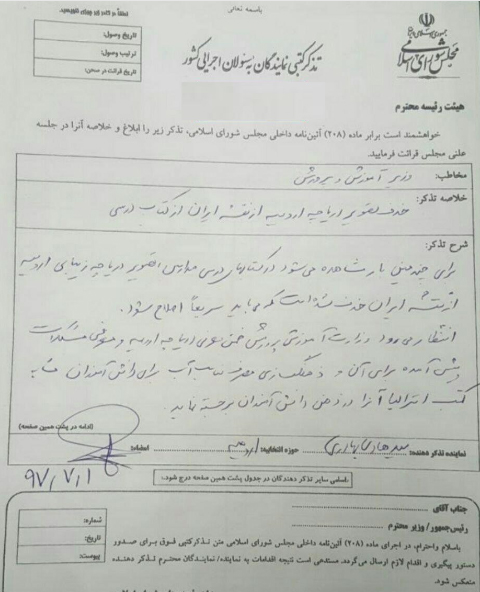 باسمه تعالی
لطفاً در کادر زیر چیزی ننویسید.
تاریخ وصول:
ترتیب وصول:
تاریخ قرائت در صحن:
تذکر کتبی نمایندگان به مسئولان اجرایی کشور
جمهوری اسلامی ایران
مجلس شورای اسلامی
هیئت رئیسه محترم
خواهشمند است برابر ماده (۲۰۸) آئین‌نامه داخلی مجلس شورای اسلامی، تذکر زیر را ابلاغ و خلاصه آنرا در جلسه
علنی مجلس قرائت فرمایید.
مخاطب: وزیر آموزش و پرورش
خلاصه تذکر: حذف تصویر دریاچه ارومیه از نقشه ایران از کتاب درسی
شرح تذکر:
برای چندمین بار مشاهده می‌شود در کتابهای درسی مدارس، تصویر دریاچه زیبایی ارومیه
از نقشه ایران حذف شده است که می‌باید سریعاً اصلاح شود.
انتظار می‌رود وزارت آموزش و پرورش ضمن معرفی دریاچه ارومیه و معرفی مشکلات
پیش آمده برای آن و فرهنگ‌سازی مصرف مناسب آب برای دانش آموزان مشابه
کتب استرالیا آنرا در ذهن دانش آموزان برجسته نماید.
(ادامه در پشت همین صفحه)
نماینده تذکر دهنده: سیدهادی بهادری حوزه انتخابیه: ارومیه امضاء:
۹۷/۷/۱
اسامی سایر تذکر دهندگان در جدول پشت همین صفحه درج شود.
جناب آقای
رئیس‌جمهور / وزیر محترم
شماره:
تاریخ:
پیوست:
باسلام واحترام، در اجرای ماده (۲۰۸) آئین‌نامه داخلی مجلس شورای اسلامی متن تذکرکتبی فوق برای صدور
دستور پیگیری و اقدام لازم ارسال می‌گردد. مستدعی است نتیجه اقدامات به نماینده/ نمایندگان محترم تذکر دهنده
منعکس شود.